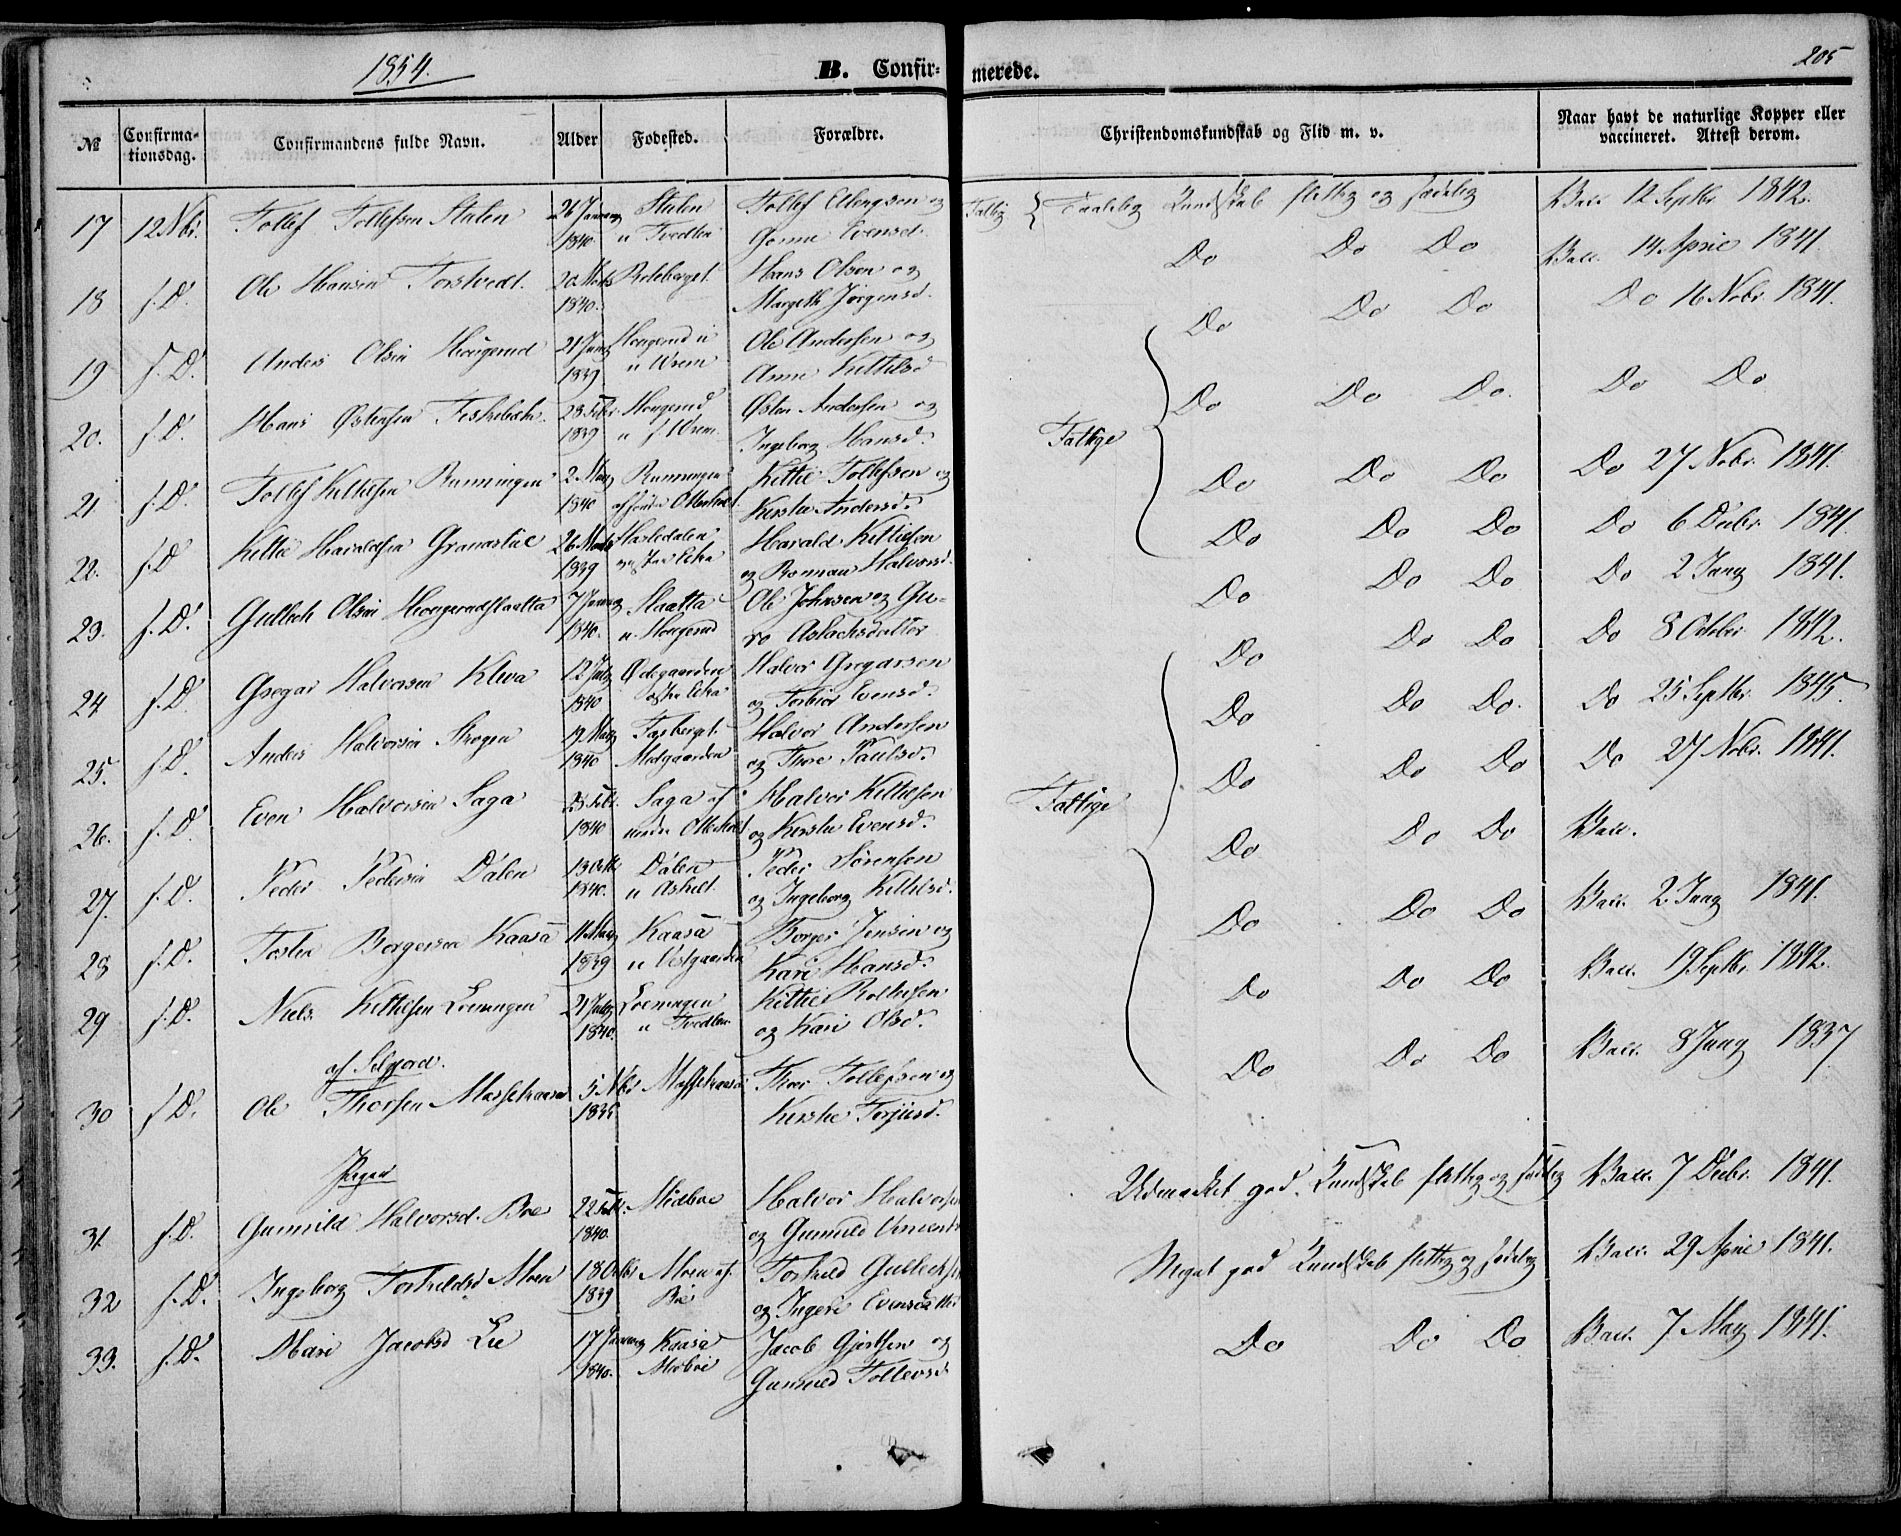 1854.
B. Confir- merede.
205
№ Confirma-tionsdag. Confirmandens fulde Navn. Alder Fødested. Forældre. Christendomskundskab og Flid m. v. Naar havt de naturlige Kopper eller vaccineret. Attest derom.
17 12 Nbr. Tollef Tollefsen Stalen 26 Januar 1840 Stalen u Tvedten Tollef Ellengsen og Gonne Evensd. Fattig { Taalelig Kundskab flittig og sædelig Vacc. 12 Septbr. 1842.
18 s. D. Ole Hansen Torstvedt. 20 Marts 1840. Hans Olsen og Margethe Jørgensd. Do Do Do Vacc. 14 April 1841.
19 s. D. Anders Olsen Hougerud 21 Juny 1839 Hougerud u Vrem Ole Andersen og Anne Kittilsd Do Do Do Do 16 Nobr. 1841.
20. s. D. Hans Østensen Fiskebæk. 28 Febr 1839 Hougerud u s. Vrem Østen Andersen og Ingeborg Hansd. Do Do Do. Do Do
Fattige
21 s. D. Tollef Kittelsen Runningen 2 May 1840 Runningen af søndre Otterholt Kittil Tollefsen og Kirstie Andersd. Do Do Do Do 27 Nobr. 1841.
22. s. D Kittil Haraldsen Granaslie 26 Marts 1839 Hasledalen Harald Kittilsen og Ronnau Halvorsd. Do Do Do Do 6 Decbr. 1841.
23. s. D. Gullech Olsen Hougerudslaatta 7 Januar 1840. Slaatta u. Hougerud Ole Johnsen og Gu-ro Aslachsdatter Do Do Do Do 2 Juny 1841.
24 s. D. Gregar Halvorsen Kleva 12 July 1840 Ødegaarden østre Eika Halvor Gregarsen og Torbiør Evensd. Do Do Do Do 8 Octobr. 1842.
25. s. D. Anders Halvorsen Skogen 19 May 1840 Midgaarden Halvor Andersen og Thore Paulsd. Do Do Do. Do 25 Septbr. 1845.
26. s. D. Even Halvorsen Saga Febr. 1840 Saga af nedre Otterholt Halvor Kittilsen og Kirstie Evensd. Do Do Do Do 27 Nobr. 1841.
Fattige
27. s. D. Peder Pedersen Dalen 13 Octb 1840. Dalen u Askilt Peder Sørensen og Ingeborg Kittilsd. Do Do Do Vacc.
28 s. D. Torsten Borgersen Kaasa 11 May 1839 Kaasa u Vestgaarden Borger Jensen og Kari Hansd. Do Do Do Vacc. 2 Juny 1841.
29 s. D. Niels Kittilsen Loeningen 21 July 1840. Loeningen u Tvedten Kittil Rollefsen og Kari Olsd. Do Do Do Vacc. 19 Septbr. 1842.
af Selgjord.
30 s D. Ole Thorsen Massekaasa 5 Nbr 1835 Massekaasa Thor Tollefsen og Kirstie Torjusd. Do Do Do Vacc. 8 Juny 1837
Piger
31. s. D. Gunnild Halvorsd. Bøe 22 Febr. 1840. Midbøe Halvor Halvorsen og Gunnild Udmærket god Kundskab flittig og sædelig Vacc. 7 Decbr. 1841.
32 s. D. Ingeborg Torkildsd Moen 18 Octbr 1839 Moen af Bø Torkild Gullechsen og Ingeri Evensdatter Meget god Kundskab flittig og sædelig Vacc. 29 April 1841.
33. s. D. Mari Jacobsd Lie 17 Januar 1840. Kaasa Midbøe Jacob Gjertsen og Gunnild Tollevsd Do Do Do Vacc. 7 May 1841.